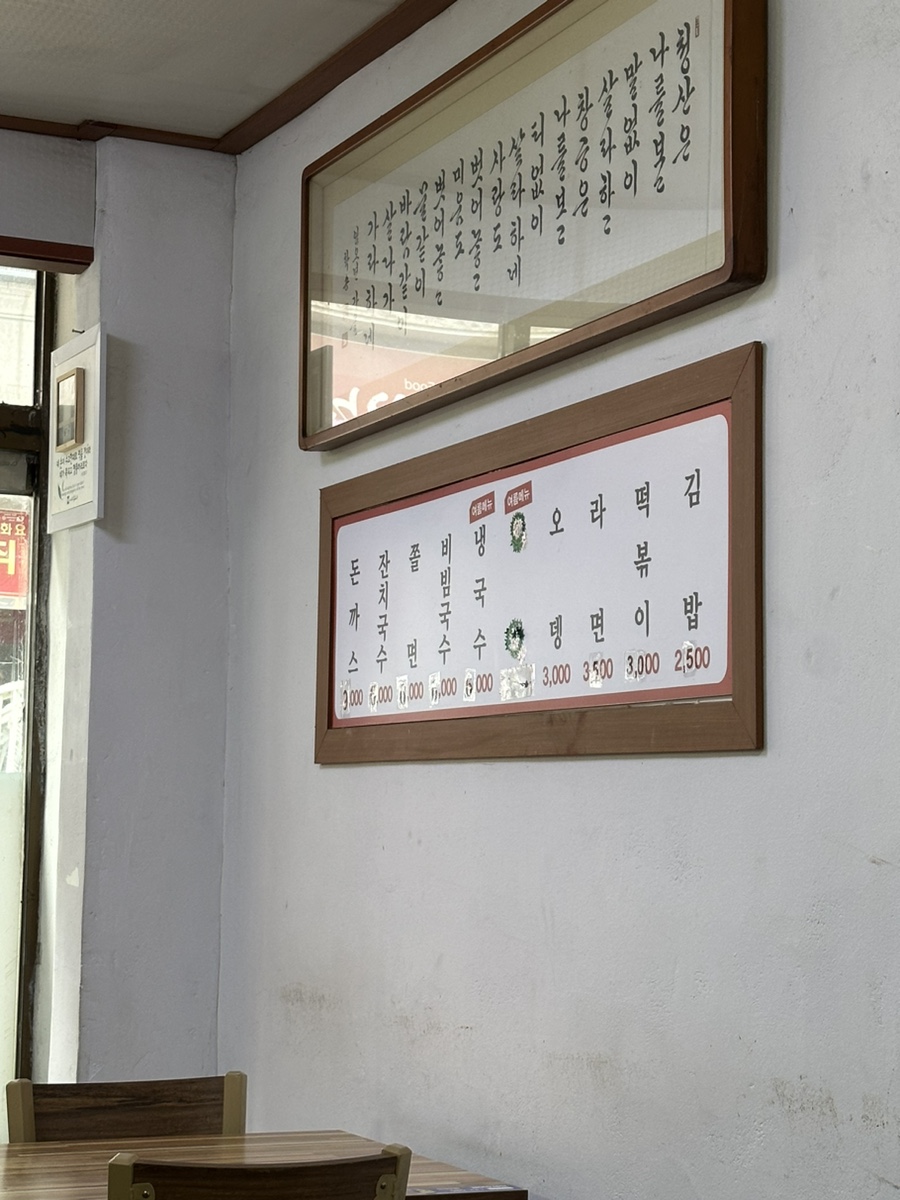 청산은
나를보고
말없이
살라하고
창공은
나를보고
티없이
살라하네
사랑도
벗어놓고
미움도
벗어놓고
물같이
바람같이
살다가
가라하네
김밥 2,500
떡볶이 3,000
라면 3,500
오뎅 3,000
여름메뉴
여름메뉴 냉국수 6,000
비빔국수
쫄면 6,000
잔치국수
돈까스
Food
화요